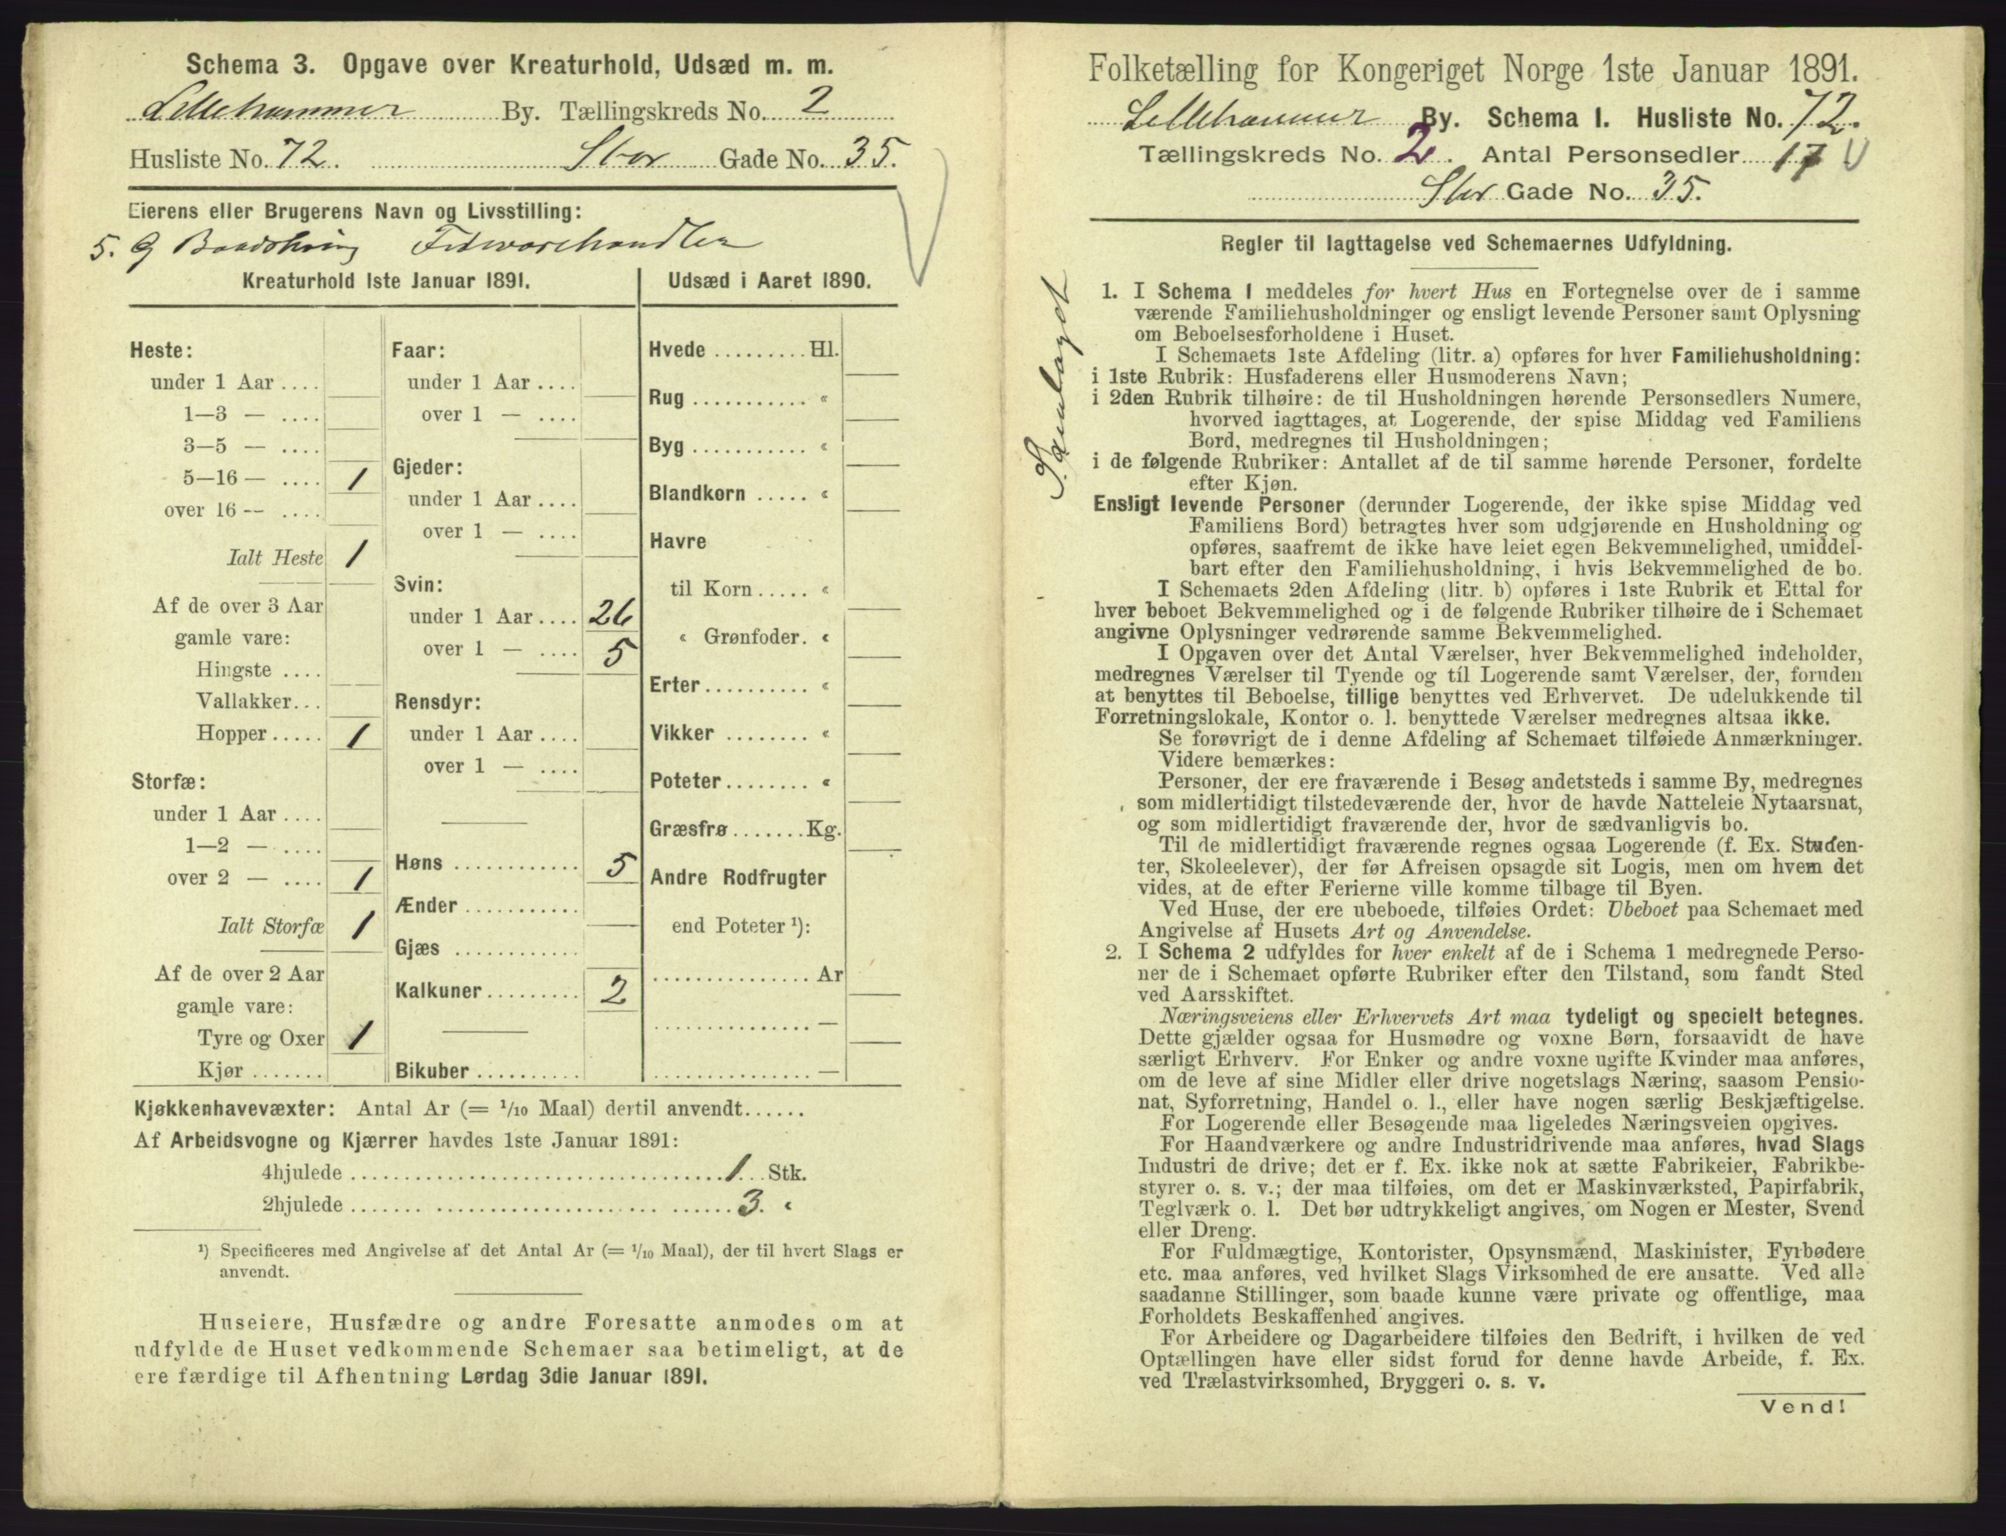 Schema 3. Opgave over Kreaturhold, Udsæd m. m.
Lillehammer By. Tællingskreds No. 2
Husliste No. 72. Stor Gade No. 35.
Eierens eller Brugerens Navn og Livsstilling:
5. G Fedevarehandler
Kreaturhold 1ste Januar 1891.
Heste:
under 1 Aar ....
1—3 — ....
3—5 — ....
5—16 — .... 1
over 16 — ....
Ialt Heste 1
Af de over 3 Aar
gamle vare:
Hingste ....
Vallakker...
Hopper ..... 1
Storfæ:
under 1 Aar ....
1—2 — ....
over 2 — .... 1
Ialt Storfæ 1
Af de over 2 Aar
gamle vare:
Tyre og Oxer 1
Kjør .......
Faar:
under 1 Aar ....
over 1 — ....
Gjeder:
under 1 Aar ....
over 1 — ....
Svin:
under 1 Aar .... 26
over 1 — .... 5
Rensdyr:
under 1 Aar ....
over 1 — ....
Høns ............ 5
Ænder ...........
Gjæs ............
Kalkuner ......... 2
Bikuber ..........
Udsæd i Aaret 1890.
Hvede ......... Hl.
Rug ........... «
Byg ........... «
Blandkorn ..... «
Havre
til Korn ..... «
« Grønfoder. «
Erter .......... «
Vikker ........ «
Poteter ........ «
Græsfrø ....... Kg.
Andre Rodfrugter
end Poteter ¹):
............... Ar
............... —
............... —
Kjøkkenhavevæxter: Antal Ar (= 1/10 Maal) dertil anvendt......
Af Arbeidsvogne og Kjærrer havdes 1ste Januar 1891:
4hjulede ................................... 1 ... Stk.
2hjulede ................................... 3. «
¹) Specificeres med Angivelse af det Antal Ar (= 1/10 Maal), der til hvert Slags er
anvendt.
Huseiere, Husfædre og andre Foresatte anmodes om at
udfylde de Huset vedkommende Schemaer saa betimeligt, at de
ere færdige til Afhentning Lørdag 3die Januar 1891.
Folketælling for Kongeriget Norge 1ste Januar 1891.
Lillehammer By. Schema I. Husliste No. 72.
Tællingskreds No. 2. Antal Personsedler 17
Stor Gade No. 35.
Samlaget
Regler til Iagttagelse ved Schemaernes Udfyldning.
1. I Schema 1 meddeles for hvert Hus en Fortegnelse over de i samme
værende Familiehusholdninger og ensligt levende Personer samt Oplysning
om Beboelsesforholdene i Huset.
I Schemaets 1ste Afdeling (litr. a) opføres for hver Familiehusholdning:
i 1ste Rubrik: Husfaderens eller Husmoderens Navn;
i 2den Rubrik tilhøire: de til Husholdningen hørende Personsedlers Numere,
hvorved iagttages, at Logerende, der spise Middag ved Familiens
Bord, medregnes til Husholdningen;
i de følgende Rubriker: Antallet af de til samme hørende Personer, fordelte
efter Kjøn.
Ensligt levende Personer (derunder Logerende, der ikke spise Middag ved
Familiens Bord) betragtes hver som udgjørende en Husholdning og
opføres, saafremt de ikke have leiet egen Bekvemmelighed, umiddel-
bart efter den Familiehusholdning, i hvis Bekvemmelighed de bo.
I Schemaets 2den Afdeling (litr. b) opføres i 1ste Rubrik et Ettal for
hver beboet Bekvemmelighed og i de følgende Rubriker tilhøire de i Schemaet
angivne Oplysninger vedrørende samme Bekvemmelighed.
I Opgaven over det Antal Værelser, hver Bekvemmelighed indeholder,
medregnes Værelser til Tyende og til Logerende samt Værelser, der, foruden
at benyttes til Beboelse, tillige benyttes ved Erhvervet. De udelukkende til
Forretningslokale, Kontor o. l. benyttede Værelser medregnes altsaa ikke.
Se forøvrigt de i denne Afdeling af Schemaet tilføiede Anmærkninger.
Videre bemærkes:
Personer, der ere fraværende i Besøg andetsteds i samme By, medregnes
som midlertidigt tilstedeværende der, hvor de havde Natteleie Nytaarsnat,
og som midlertidigt fraværende der, hvor de sædvanligvis bo.
Til de midlertidigt fraværende regnes ogsaa Logerende (f. Ex. Studen-
ter, Skoleelever), der før Afreisen opsagde sit Logis, men om hvem det
vides, at de efter Ferierne ville komme tilbage til Byen.
Ved Huse, der ere ubeboede, tilføies Ordet: Ubeboet paa Schemaet med
Angivelse af Husets Art og Anvendelse.
2. I Schema 2 udfyldes for hver enkelt af de i Schema 1 medregnede Perso-
ner de i Schemaet opførte Rubriker efter den Tilstand, som fandt Sted
ved Aarsskiftet.
Næringsveiens eller Erhvervets Art maa tydeligt og specielt betegnes.
Dette gjælder ogsaa for Husmødre og voxne Børn, forsaavidt de have
særligt Erhverv. For Enker og andre voxne ugifte Kvinder maa anføres,
om de leve af sine Midler eller drive nogetslags Næring, saasom Pensio-
nat, Syforretning, Handel o. l., eller have nogen særlig Beskjæftigelse.
For Logerende eller Besøgende maa ligeledes Næringsveien opgives.
For Haandværkere og andre Industridrivende maa anføres, hvad Slags
Industri de drive; det er f. Ex. ikke nok at sætte Fabrikeier, Fabrikbe-
styrer o. s. v.; der maa tilføies, om det er Maskinværksted, Papirfabrik,
Teglværk o. l. Det bør udtrykkeligt angives, om Nogen er Mester, Svend
eller Dreng.
For Fuldmægtige, Kontorister, Opsynsmænd, Maskinister, Fyrbødere
etc. maa anføres, ved hvilket Slags Virksomhed de ere ansatte. Ved alle
saadanne Stillinger, som baade kunne være private og offentlige, maa
Forholdets Beskaffenhed angives.
For Arbeidere og Dagarbeidere tilføies den Bedrift, i hvilken de ved
Optællingen have eller sidst forud for denne havde Arbeide, f. Ex.
ved Trælastvirksomhed, Bryggeri o. s. v.
Vend!